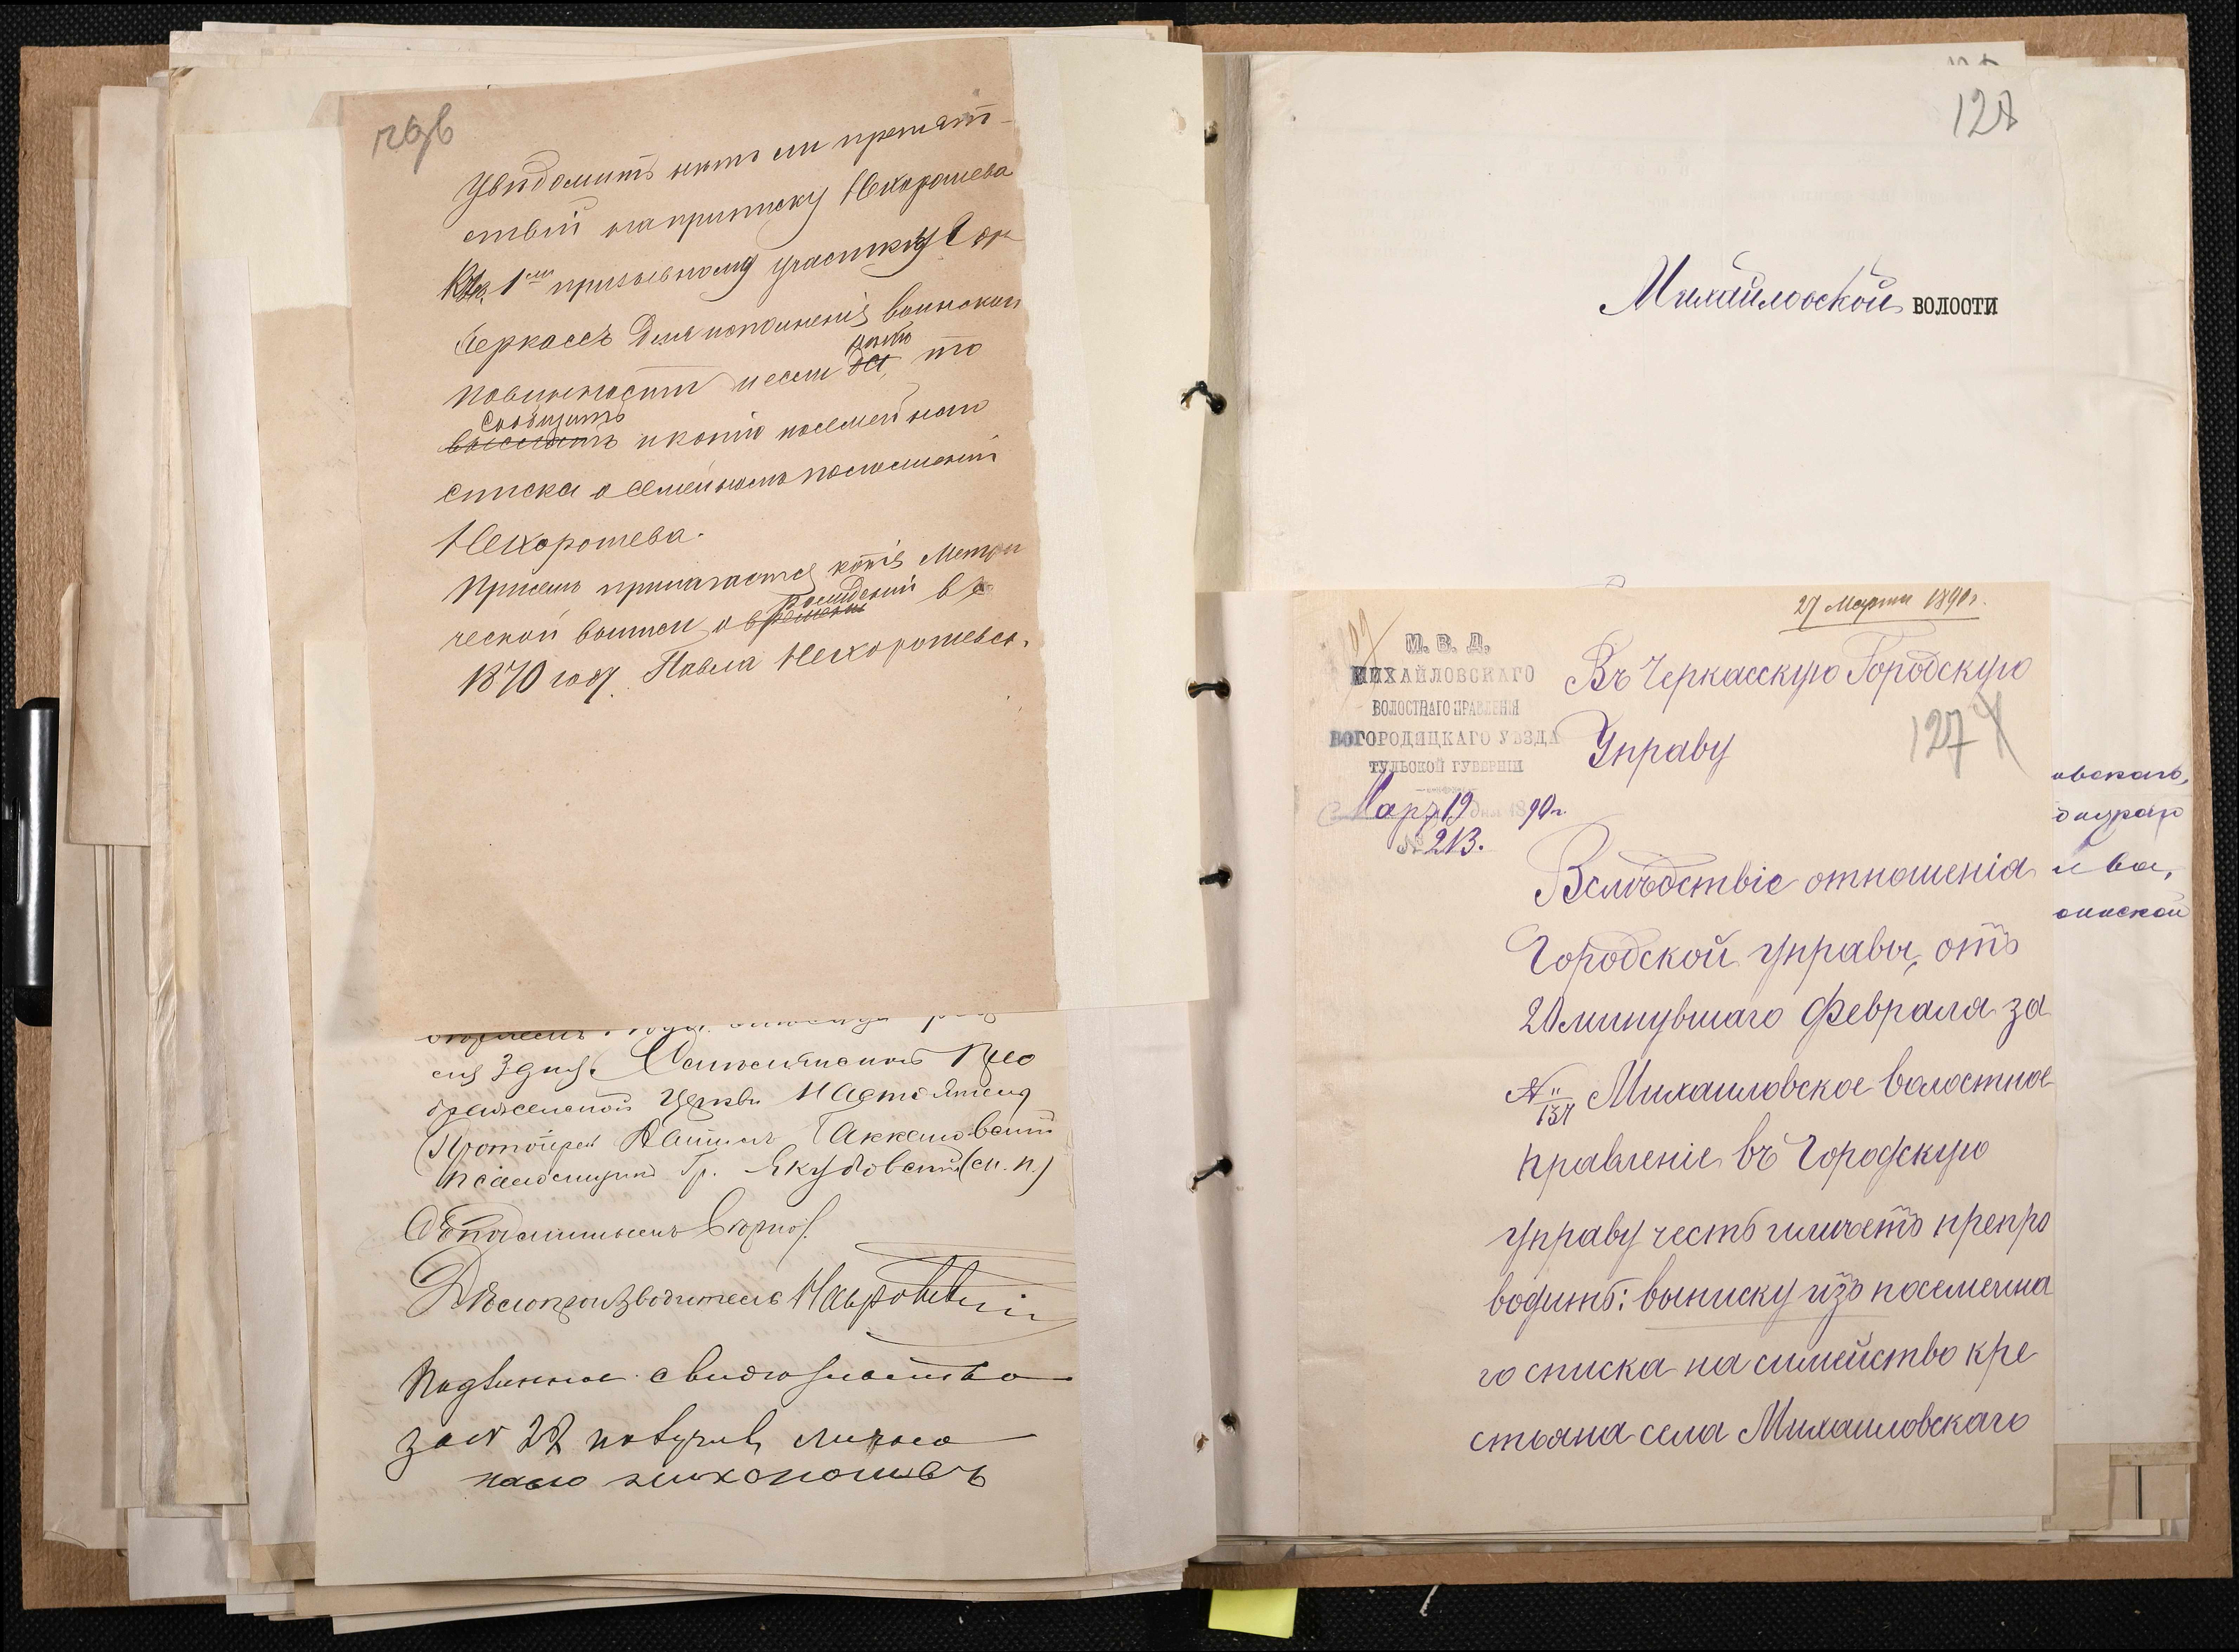 увѣдомить нѣтъ ли препят-
ствій на приписку Нехорошева
къ 1му призывному участку Гор
Черкассъ для исполненія воинской
повинности и если да, нѣтъ то
Сообщить
выслать и копію посемейнаго
списка о семейномъ положеніи
Нехорошева.
Присемъ прилагается копія Метри
ческой выписи о рожденіи въ
1870 году Павла Нехорошева.
Церкви Настоятель
Протоіерей
псаломщикъ Гр. Якубовскій (м. п.)
Съ подлиннымъ вѣрно:
Дѣлопроизводитель
Подлинное свидетельство
за № 28 получилъ лично
Павло Нихорошевъ
128
Михайловской ВОЛОСТИ
27 Марта 1890 г.
М. В. Д.
МИХАЙЛОВСКАГО
ВОЛОСТНАГО ПРАВЛЕНІЯ
БОГОРОДИЦКАГО УѢЗДА
ТУЛЬСКОЙ ГУБЕРНІИ
Мар. 19 дня 1890 г.
№ 213.
Въ Черкасскую Городскую
Управу
127
Вслѣдствіе отношенія
Городской управы, отъ
20 минувшаго Февраля за
№ 137 Михаиловское волостное
правленіе въ Городскую
управу честь имѣетъ препро
водить: выписку изъ посемейна
го списка на симейство кре
стьяна села Михаиловскаго